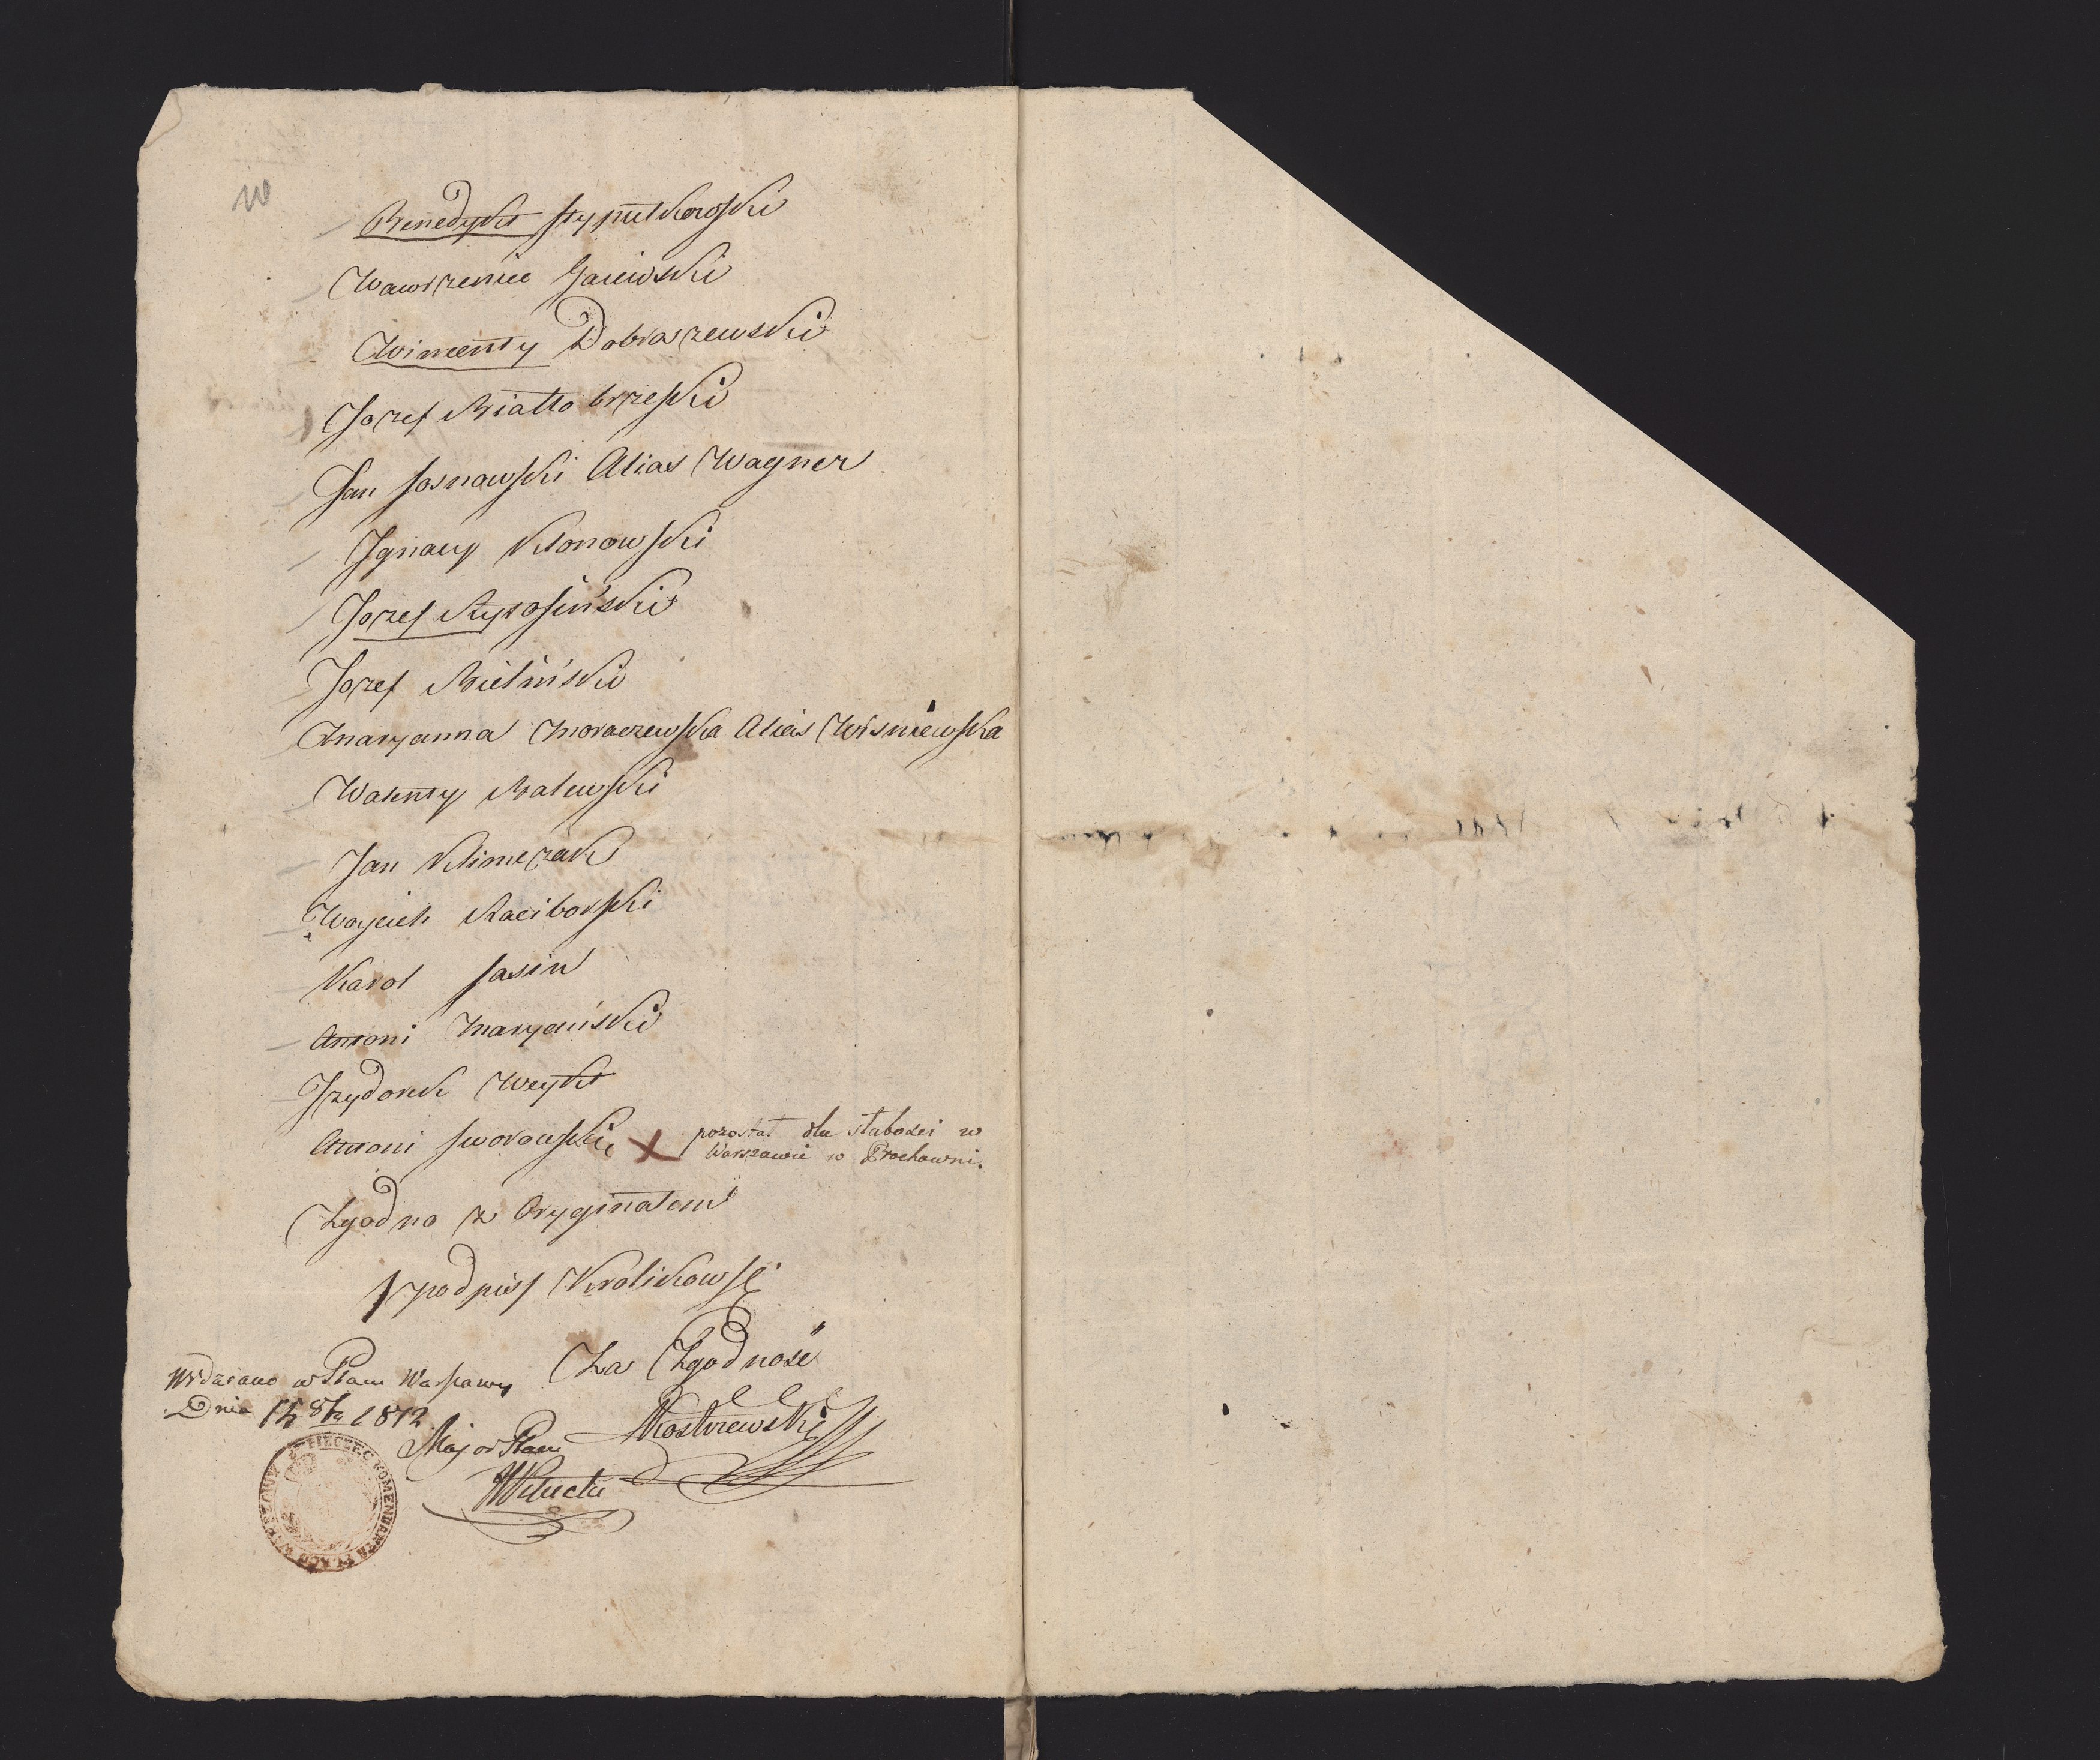 Benedykt Stypułkowski
Wawrzeniec Gaiewski
Wincenty Dobraszewski
Jozef Białłobrzeski
Jan Sosnowski Alias Wagner
Ignacy Klonowski
Jozef
Jozef Bieliński
Maryanna Moraczewska Alias Wisniewska
Walenty Balewski
Jan Klimczak
Woyciech Raciborski
Karol Sasin
Antoni Maryański
Izydorek Weykt
Antoni Sworowski X pozostał dla słabości w
Warszawie w Prochowni.
Zgodno z Oryginałem
podpis Krolikowski
Za Zgodność
Widziano w Placu Warszawy
Dnia 14 8br 1812
Kostrzewski
Major Placu
PIECZEC KOMENDANTA PLACU WARSZAWY